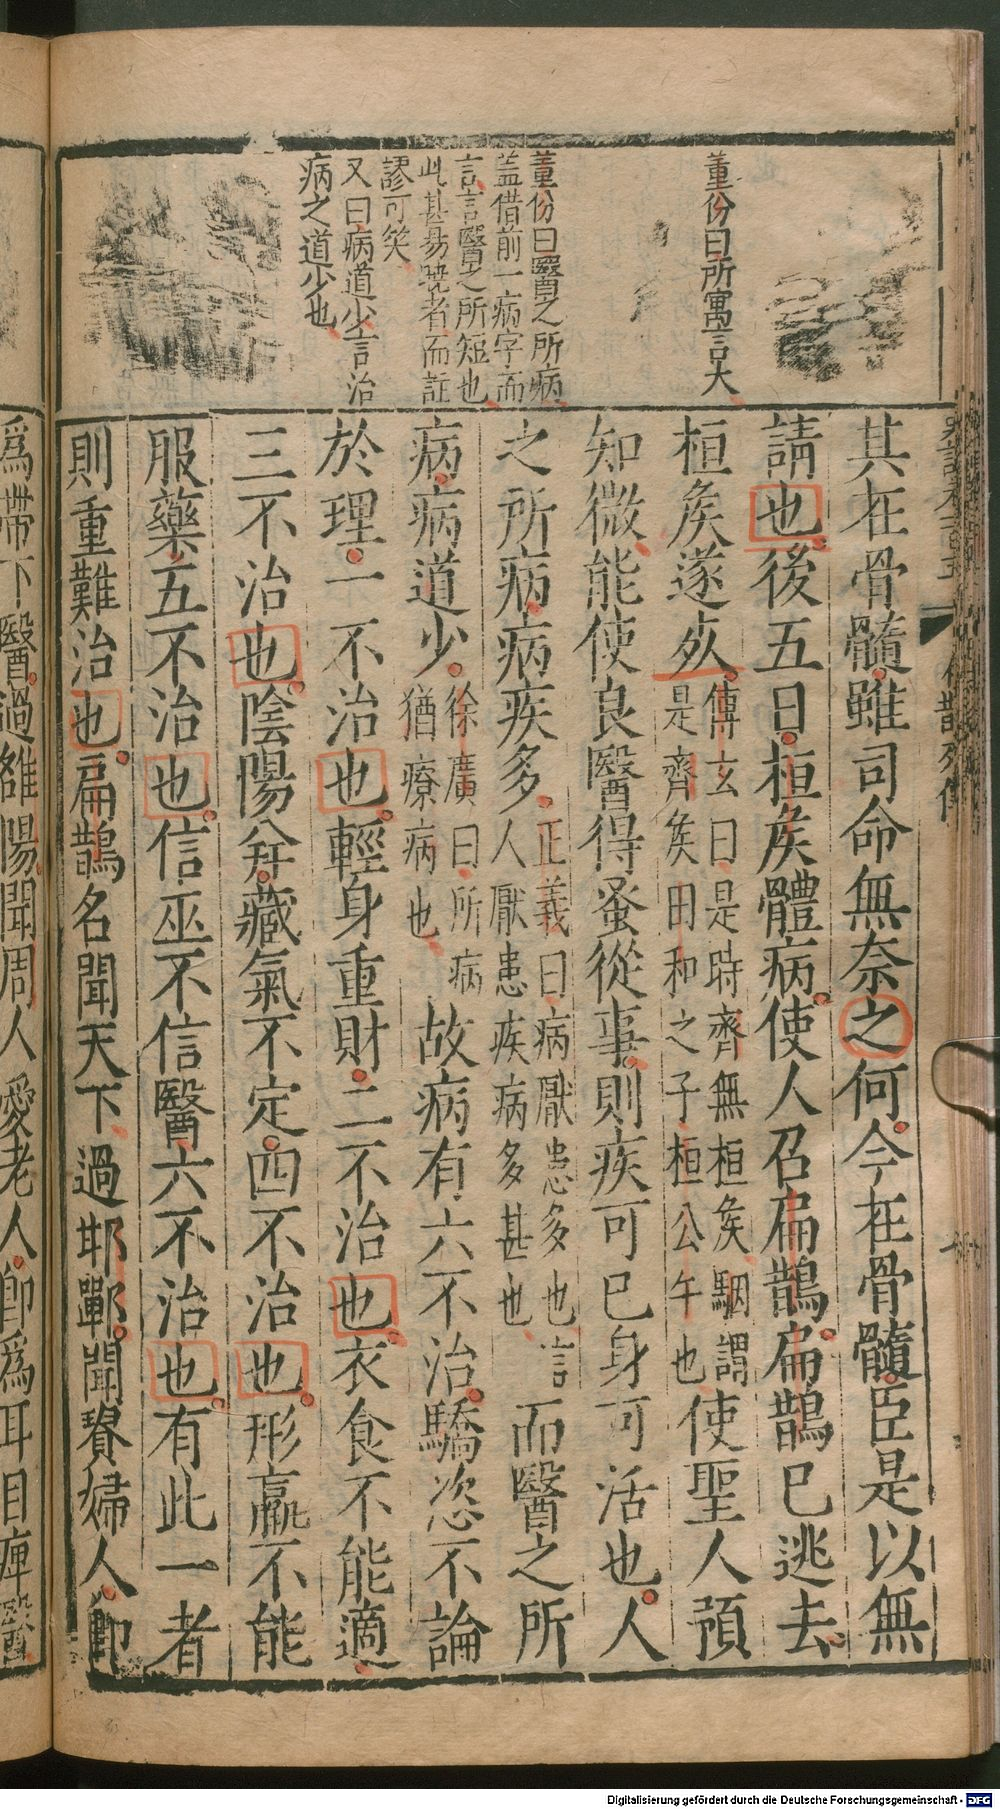 董份曰所寓言大
董份曰醫之所病
盖借前一病字而
言言醫之所短也
此甚易曉者而註
謬可笑
又曰病道少言治
病之道少也
其在骨髓雖司命無奈之何今在骨髓臣是以無
請也後五日桓矦體病使人召扁鵲扁鵲已逃去
桓矦遂死
傅玄曰是時齊無桓矦駰謂
是齊矦田和之子桓公午也
使聖人預
知微能使良醫得蚤從事則疾可已身可活也人
之所病病疾多
正義曰病厭患多也言
人厭患疾病多甚也
而醫之所
病病道少
徐廣曰所病
猶療病也
故病有六不治驕恣不論
於理一不治也輕身重財二不治也衣食不能適
三不治也陰陽并藏氣不定四不治也形羸不能
服藥五不治也信巫不信醫六不治也有此一者
則重難治也扁鵲名聞天下過邯鄲聞貴婦人卽
爲帶下醫過雒陽聞周人愛老人卽爲耳目痺醫
Digitalisierung gefördert durch die Deutsche Forschungsgemeinschaft - DFG